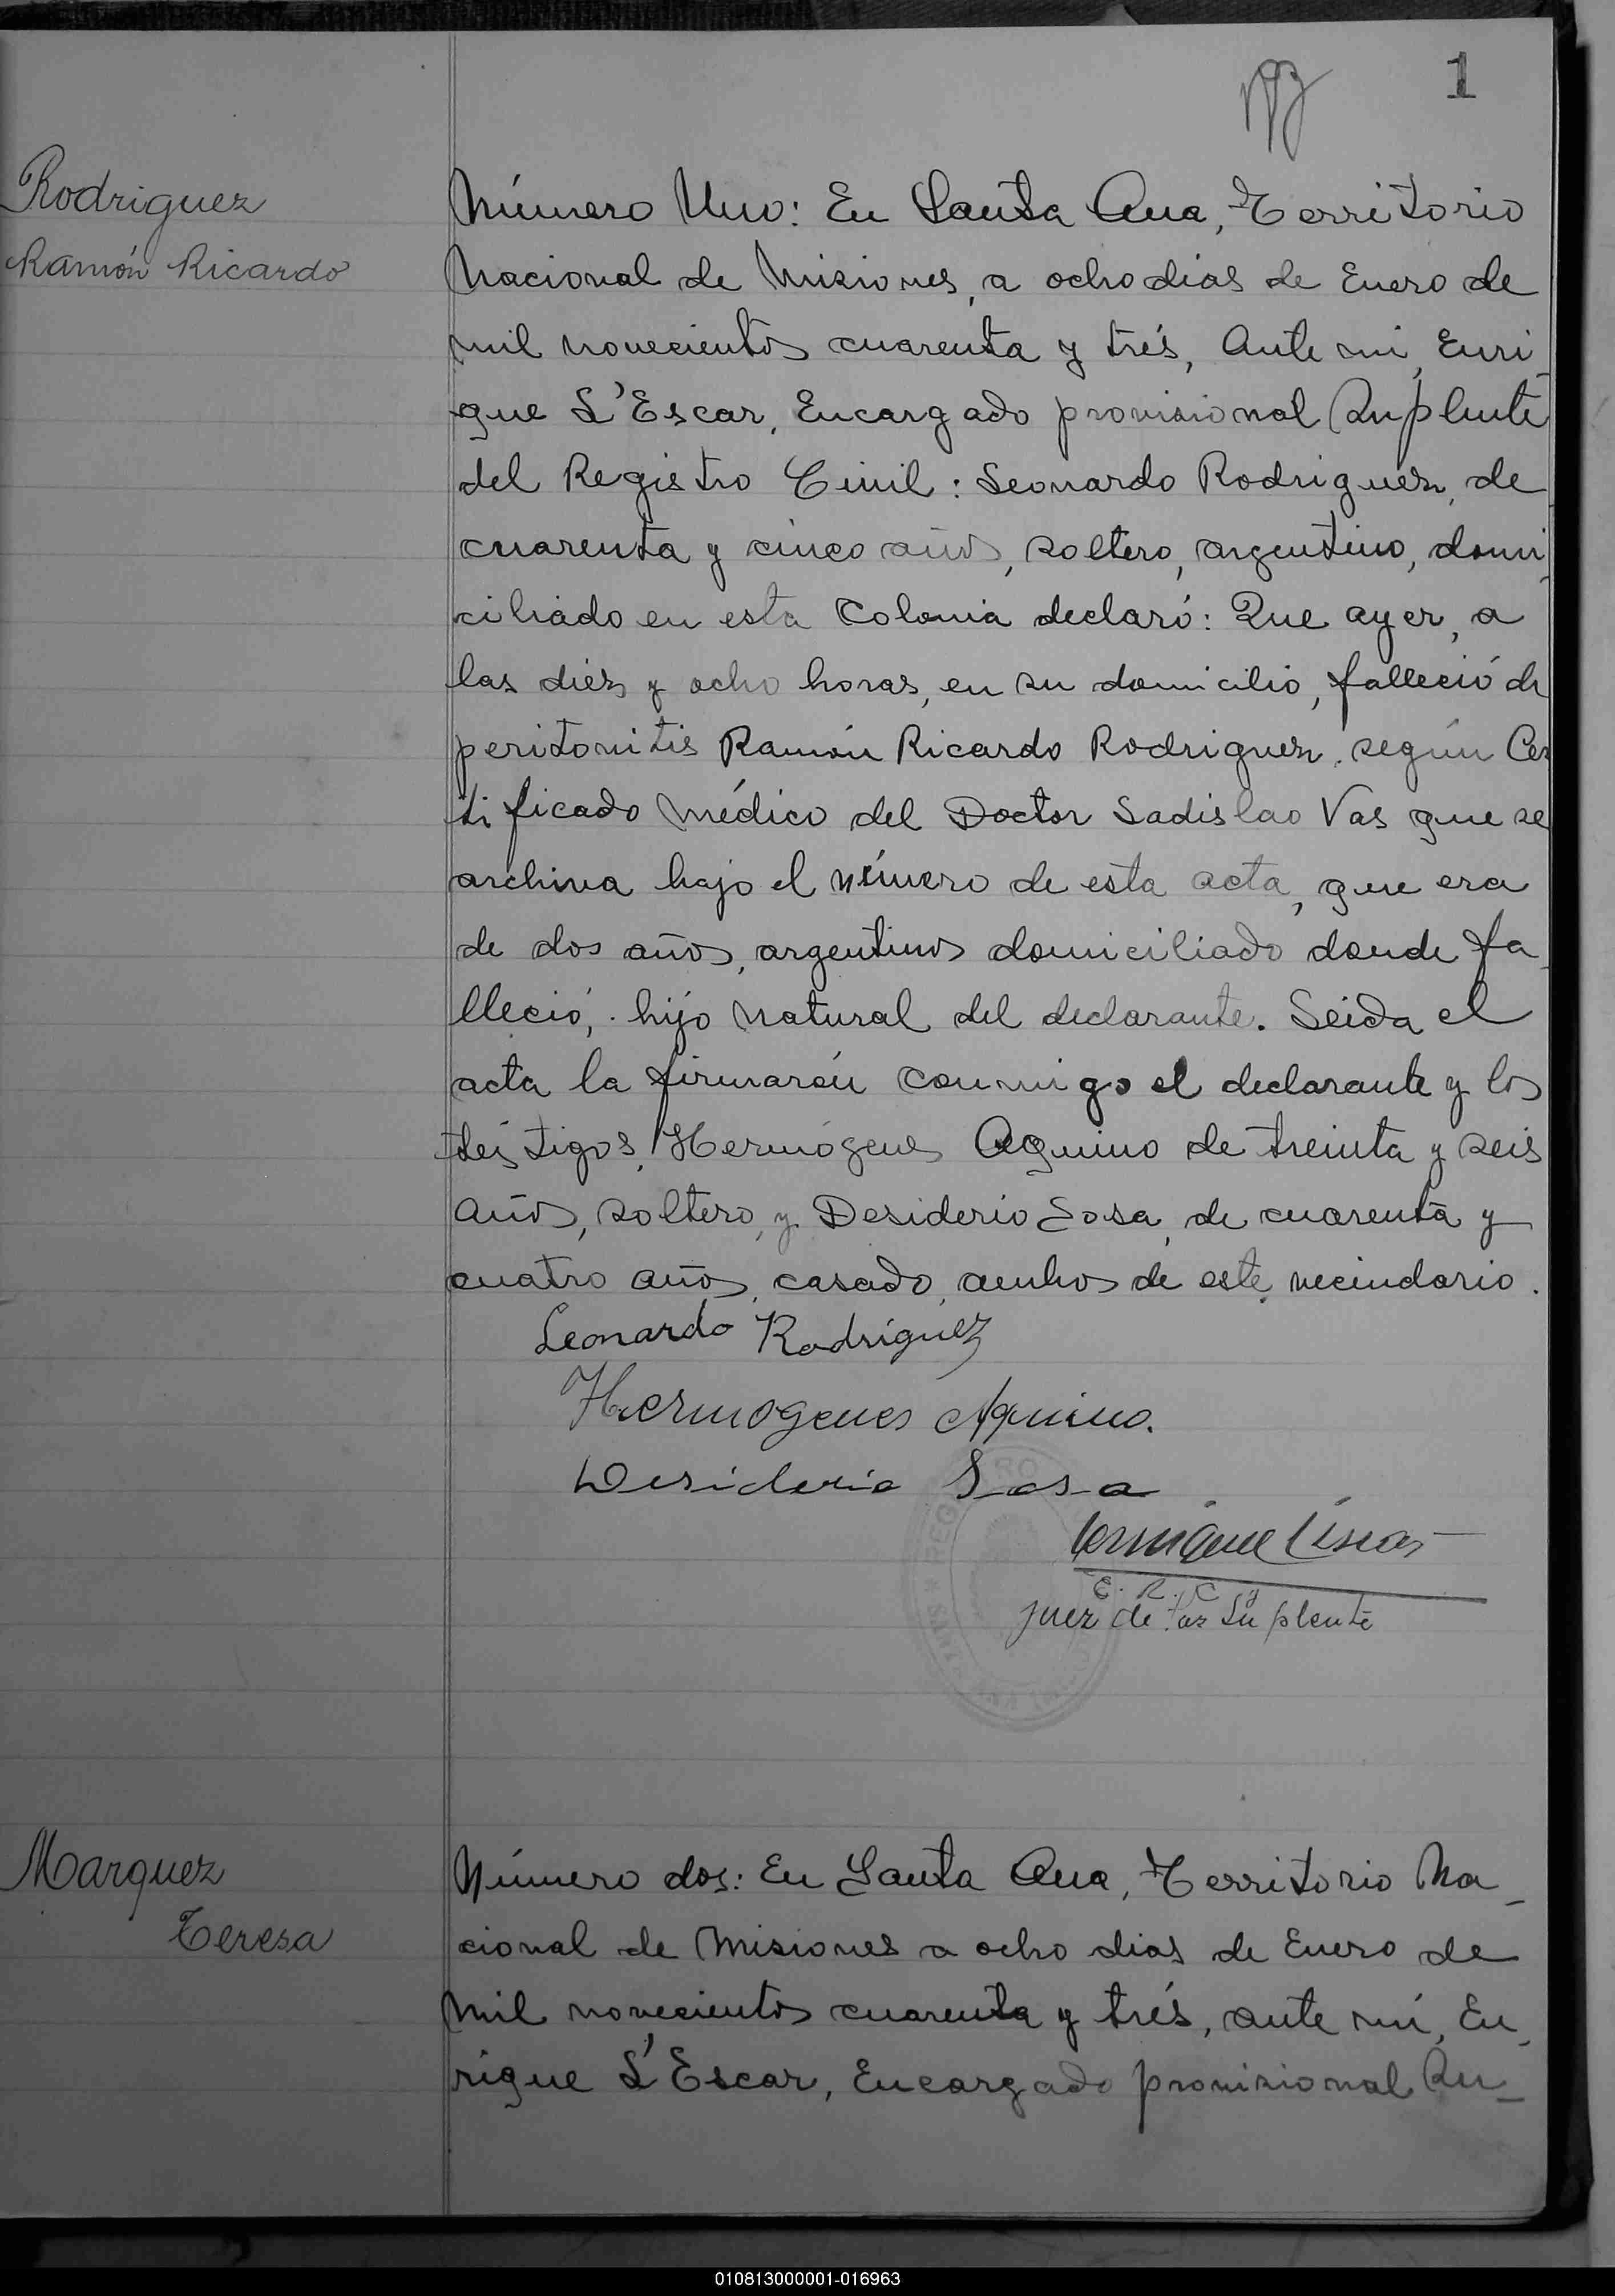 1
Rodriguez
Ramón Ricardo
Número Uno: En Santa Ana, Territorio
Nacional de Misiones, a ocho dias de Enero de
mil novecientos cuarenta y trés, Ante mi, Enri
que L'Escar, Encargado provisional Suplente
del Registro Civil: Leonardo Rodriguéz, de
cuarenta y cinco años, soltero, argentino, domi
ciliado en esta Colonia declaró: Que ayer, a
las diéz y ocho horas, en su domicilio, falleció de
peritonitis Ramón Ricardo Rodriguez, según Cer
tificado Médico del Doctor Ladislao Vas que se
archiva bajo el número de esta acta, que era
de dos años, argentinos domiciliado donde fa
lleció, hijo natural del declarante. Leida el
acta la firmarón conmigo el declarante y los
téstigos, Hermógenes Aquino de treinta y seis
años, soltero, y Desiderio Sosa, de cuarenta y
cuatro años, casado, ambos de este vecindario.
Leonardo Rodríguez
Hermogenes Aquino.
Desiderio Sosa
Enrique L'Escar
E. R. C y
juez de Paz Suplente
Marquez
Teresa
Número dos: En Santa Ana, Territorio Na_
cional de Misiones a ocho dias de Enero de
Mil novecientos cuarenta y trés, ante mí, En_
rique L'Escar, Encargado provisional Su_
010813000001-016963